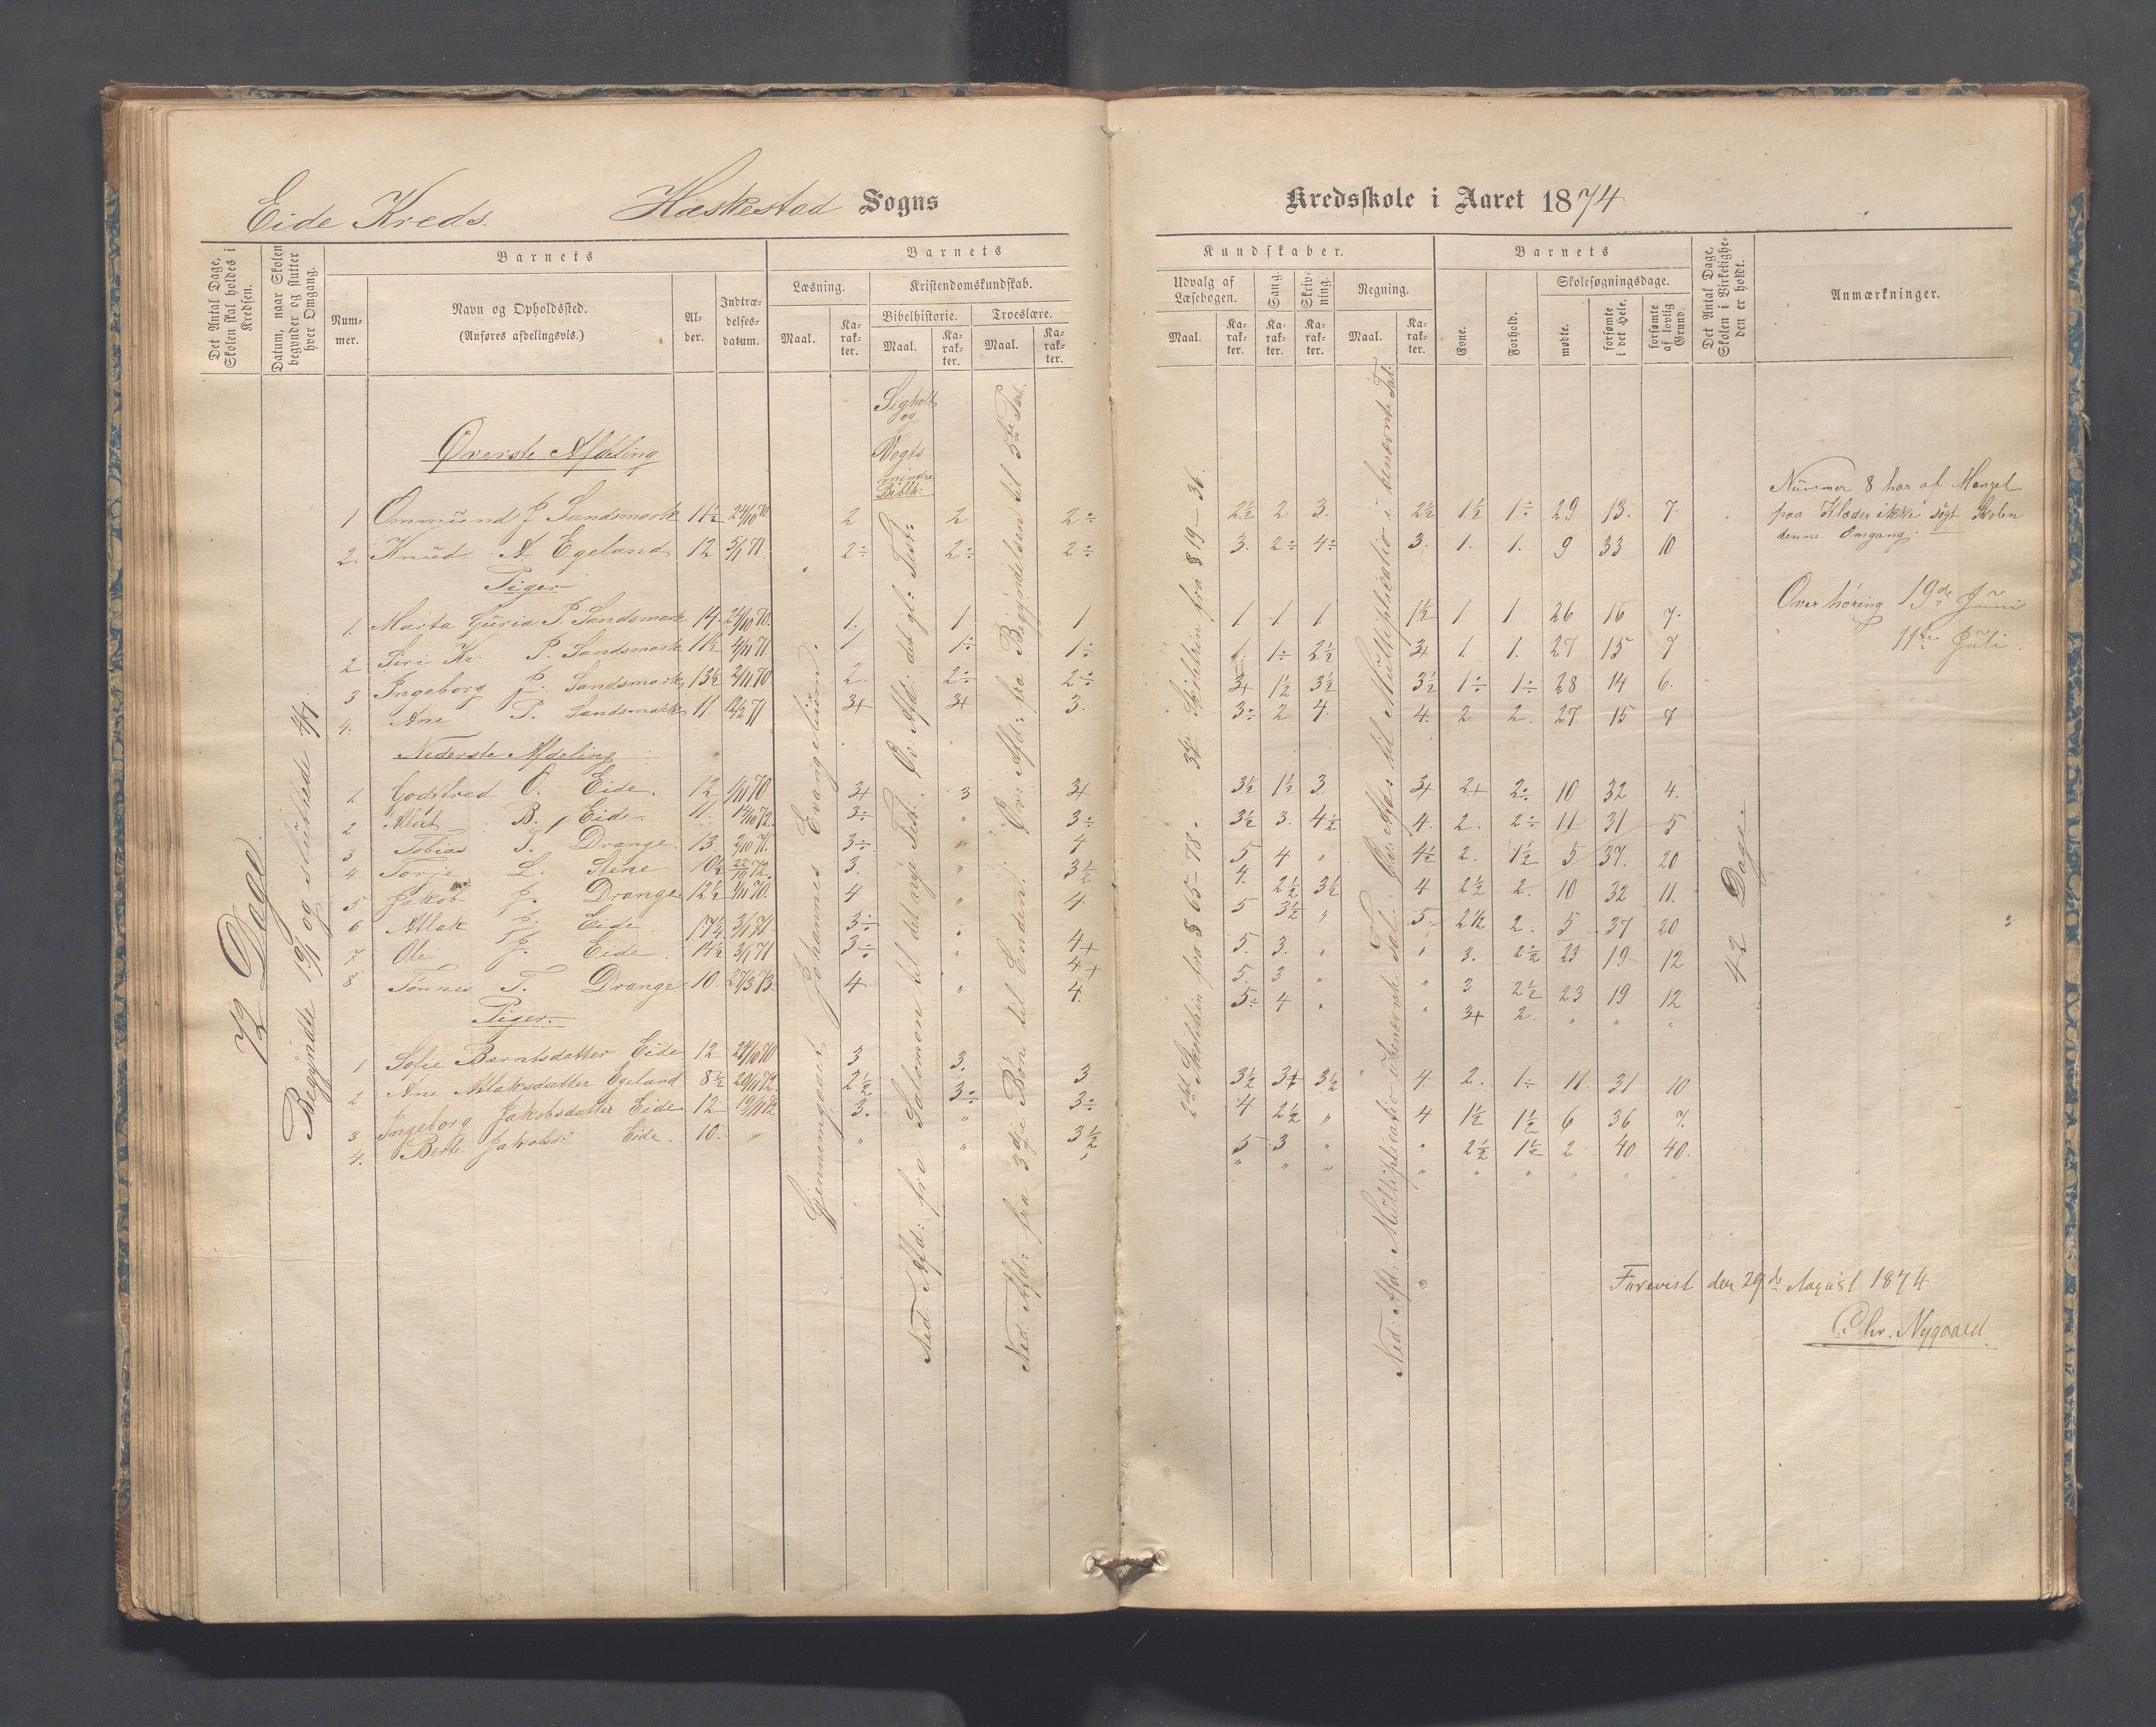 Eide Kreds. Heskestad Sogns Kredsskole i Aaret 1874
Det Antal Dage, Skolen skal holdes i Kredsen.
Datum, naar Skolen begynder og slutter hver Omgang.
Barnets
Nummer.
Navn og Opholdssted.
(Anføres afdelingsvis.)
Alder.
Indtrædelsesdatum.
Barnets
Læsning.
Maal. Karakter.
Kristendomskundskab.
Bibelhistorie. Troeslære.
Maal. Karakter. Maal. Karakter.
Kundskaber.
Udvalg af Læsebogen. Sang. Skrivning. Regning.
Maal. Karakter. Karakter. Karakter. Maal. Karakter.
Barnets
Evne. Forhold.
Skolesøgningsdage.
mødte. forsømte i det Hele. forsømte af lovlig Grund.
Det Antal Dage, Skolen i Virkeligheden er holdt.
Anmærkninger.
72 Dage.
Begyndte 19/1 og sluttede 4/7.
Gjennemgaaet Johannes Evangelium.
og
Vogts
mindre
Biblh:
Ned: Afd: fra Salomon til det nye Test. Øv: Afd: det gl: Test:
Ned: Afd: fra 3die Bøn til Enden. Øv: Afd: fra Begyndelsen til 3die Part.
2det Skoletrin fra § 65-78. 3die Skoletrin fra § 19-36.
Ned: Afd: Multiplicatio i ubenævnte Tal. Øv: Afd: til Multiplicatio i benævnte Tal.
42 Dage.
Øverste Afdeling
1 Ommund J Sandsmark 11½ 24/10 70 2 2 2÷ 2½ 2 3. 2½ 1½ 1÷ 29 13. 7
2. Knud A. Egeland 12 5/1 71. 2÷ 2÷ 2÷ 3. 2÷ 4÷ 3. 1. 1. 9 33 10
Piger
1. Marta Guria P. Sandsmark 14. 24/10 70. 1. 1 1 1 1 1 1½ 1 1 26 16 7.
2 Siri Kr. P. Sandsmark 11½ 4/11 71. 1 1÷ 1÷ 1. 1÷ 2½ 3+ 1. 1. 27 15 7
3 Ingeborg J. Sandsmark 13½ 2/11 70. 2. 2÷ 2÷ 3+ 1½ 3½ 3½ 1÷ 1÷ 28 14 6.
4. Ane P. Sandsmark 11. 12/2 71 3+ 3+ 3. 3÷ 2 4. 4. 2 2. 27 15 7
Nederste Afdeling
1. Godtfred O. Eide. 12 1/11 70 3+ 3 3+ 3½ 1½ 3 3+ 2+ 2÷ 10 32 4.
2 Albert B. Eide 11. 14/10 72. 3÷ " 3÷ 3½ 3. 4½ 4. 2. 2÷ 11 31 5
3 Tobias T. Drange. 13. 2/10 71. 3÷ " 4 5 4 " 4½ 2. 1½ 5 37. 20
4 Torje L. Stene 10½ 22/10 72. 3. " 3½ 4. 2½ 3½ 4 2½ 2. 10 32 11.
5 Jakob J. Drange 12½ 1/11 70. 4 " 4 5 3½ " 5. 2½ 2. 5 37 20
6 Atlak J. Eide 17¼ 3/1 71 3÷ " 4+ 5. 3. " " 3. 2½ 23 19 12
7 Ole J. Eide. 14½ 3/1 71 3÷ " 4+ 5. 3 " " 3 2½ 23 19 12
8 Tønnes T. Drange 10. 27/3 73. 4 " 4. 5÷ 4 " " 3+ 2. " " "
Piger.
1 Sofie Barntsdatter Eide 12 24/10 70 3 3. 3 3½ 3+ 3½ 4 2. 1÷ 11 31 10
2 Ane Atlaksdatter Egeland 8½ 20/11 72. 2½ 3÷ 3÷ 4 2½ " 4 1½ 1½ 6 36 7.
3 Ingeborg Jakobsdatter Eide 12 19/11 72 3. " 3½ 5 3 " " 2½ 1½ 2 40 40.
4. Berte Jakobs: Eide. 10. " " " " " " " " " " " " "
Nummer 8 har af Mangel
paa Klæder ikke søgt Skolen
denne Omgang.
Overhøring 19de Juni
11te Juli.
Forevist den 29de August 1874
Chr. Nygaard.